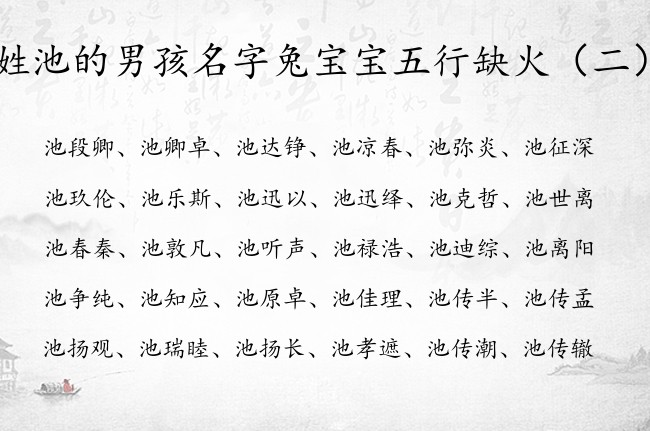 姓池的男孩名字兔宝宝五行缺火（二）
池段卿、池卿卓、池达铮、池凉春、池弥炎、池征深
池玖伦、池乐斯、池迅以、池迅绎、池克哲、池世离
池春秦、池敦凡、池听声、池禄浩、池迪综、池离阳
池争纯、池知应、池原卓、池佳理、池传半、池传孟
池扬观、池瑞睦、池扬长、池孝遮、池传潮、池传辙